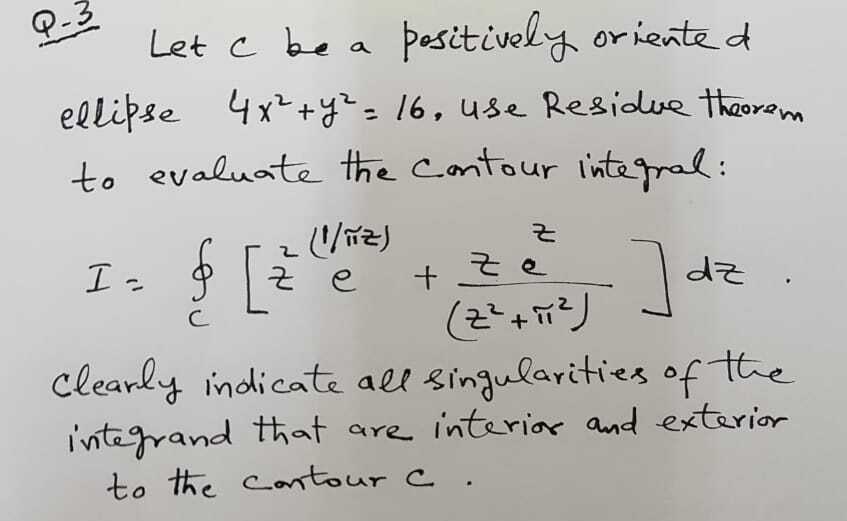 Q-3
Let C be a positively oriented
ellipse 4x² + y² = 16, use Residue theorem
to evaluate the contour integral:
I = ∮_C [ z² e^(1/πz) + z e^z / (z² + π²) ] dz .
Clearly indicate all singularities of the
integrand that are interior and exterior
to the contour C .